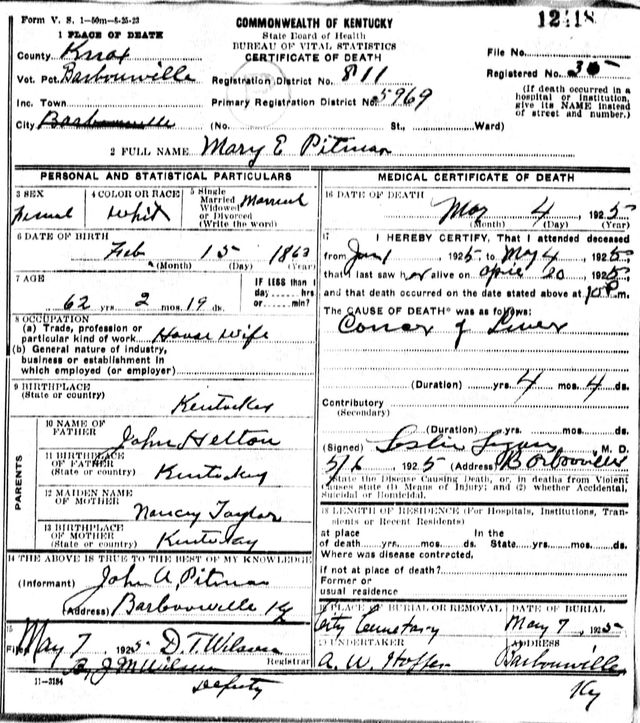 Form V. S. 1-50m-8-25-23
COMMONWEALTH OF KENTUCKY
State Board of Health
BUREAU OF VITAL STATISTICS
CERTIFICATE OF DEATH
12418
1 PLACE OF DEATH
County Knox
Vot. Pct. Barbourville
Inc. Town
City Barbourville
Registration District No. 811
Primary Registration District No. 5969
(No. St., Ward)
File No.
Registered No. 35
(If death occurred in a
hospital or institution,
give its NAME instead
of street and number.)
2 FULL NAME Mary E Pitman
PERSONAL AND STATISTICAL PARTICULARS
3 SEX
Femal
4 COLOR OR RACE
Whit
5 Single
Married
Widowed
or Divorced
(Write the word)
Married
6 DATE OF BIRTH
Feb 15 1863
(Month) (Day) (Year)
7 AGE
62 yrs. 2 mos. 19 ds.
IF LESS than 1
day hrs
or min?
8 OCCUPATION
(a) Trade, profession or
particular kind of work House Wife
(b) General nature of industry,
business or establishment in
which employed (or employer)
9 BIRTHPLACE
(State or country)
Kentuckey
PARENTS
10 NAME OF
FATHER
John Helton
11 BIRTHPLACE
OF FATHER
(State or country)
Kentuckey
12 MAIDEN NAME
OF MOTHER
Nancy Taylor
13 BIRTHPLACE
OF MOTHER
(State or country)
14 THE ABOVE IS TRUE TO THE BEST OF MY KNOWLEDGE
(Informant) John A. Pitman
(Address) Barbourville Ky
15
Filed May 7 1925 D. T. Wilson
Registrar
By J M Wilson
Deputy
11-3184
MEDICAL CERTIFICATE OF DEATH
16 DATE OF DEATH
May 4 1925
(Month) (Day) (Year)
17
I HEREBY CERTIFY, That I attended deceased
from Jan 1 1925 to May 4 1925
that I last saw her alive on April 20 1925
and that death occurred on the date stated above at 10 P m.
The CAUSE OF DEATH* was as follows:
Concer of Liver
(Duration) yrs. 4 mos. 4 ds.
Contributory
(Secondary)
(Duration) yrs. mos. ds.
(Signed) Leslie M. D.
5/6 1925 (Address) Barbourville
*State the Disease Causing Death, or, in deaths from Violent
Causes state (1) Means of Injury; and (2) whether Accidental,
Suicidal or Homicidal.
18 LENGTH OF RESIDENCE (For Hospitals, Institutions, Tran-
sients or Recent Residents)
at place
of death yrs. mos. ds.
In the
State yrs. mos. ds.
Where was disease contrected,
if not at place of death?
Former or
usual residence
19 PLACE OF BURIAL OR REMOVAL
City Cemetary
DATE OF BURIAL
May 7, 1925
20 UNDERTAKER
A. W. Hopper
ADDRESS
Barbourville
Ky